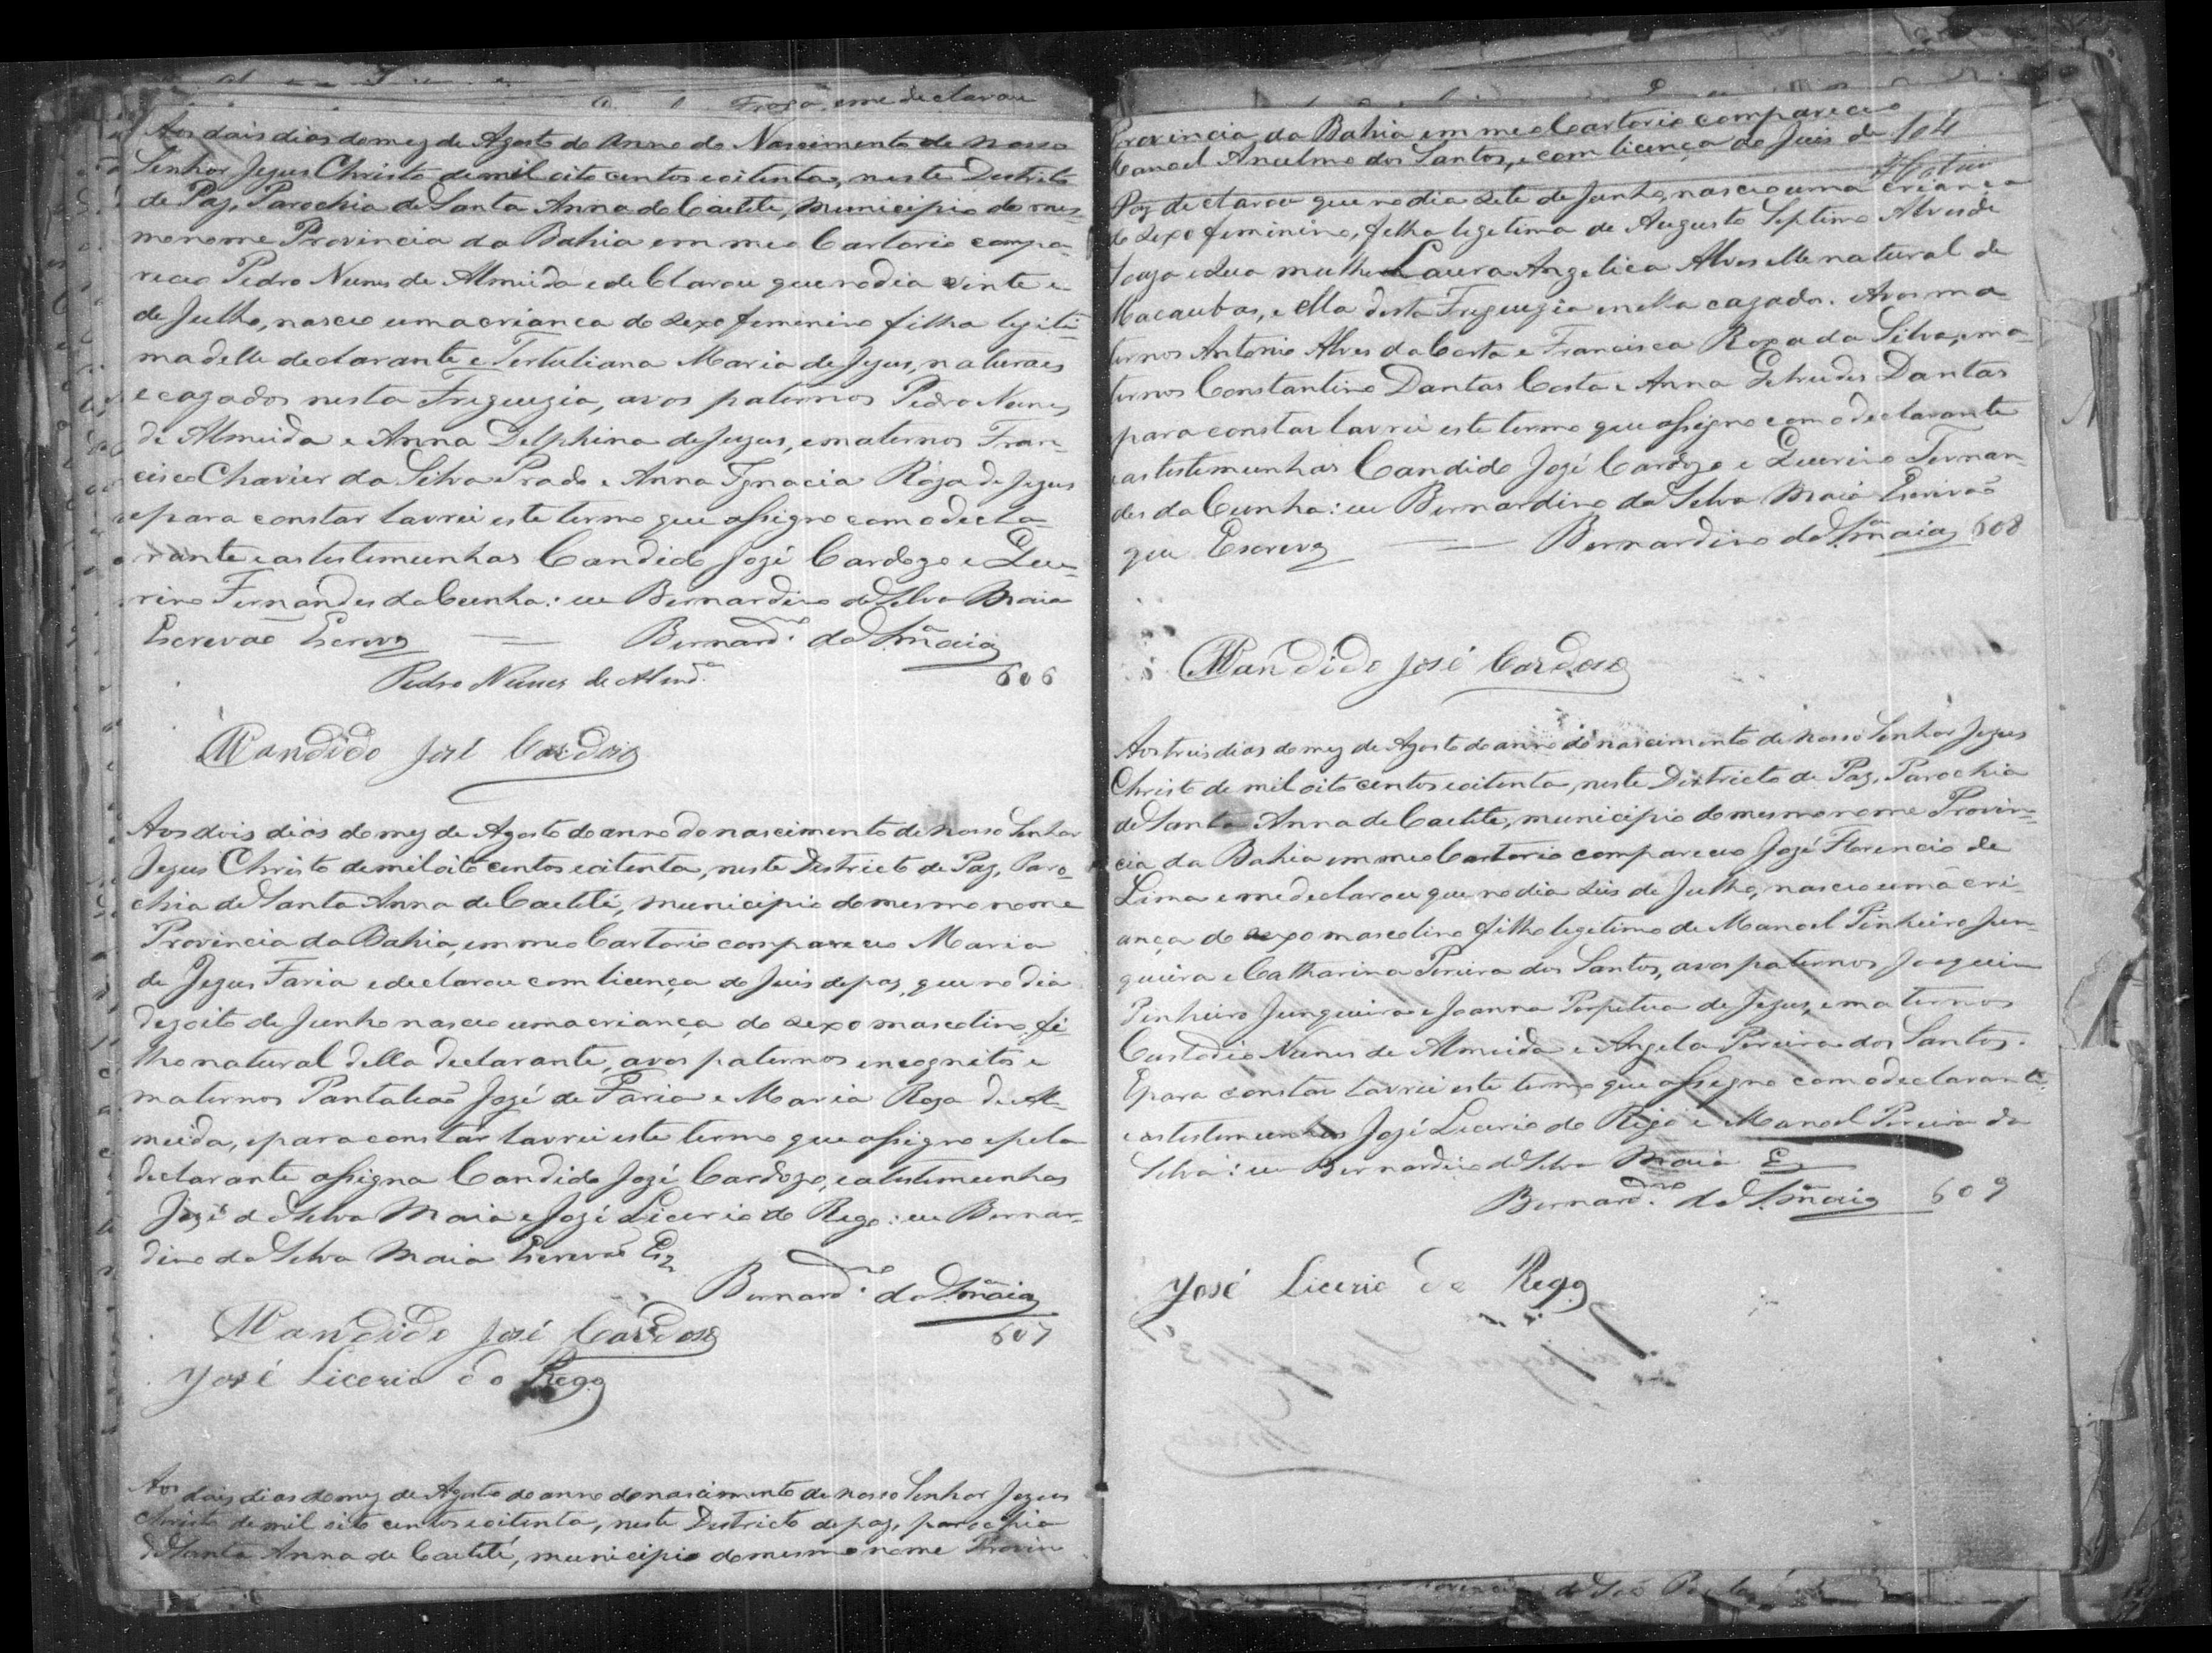 Froga, e me declarou
Aos dois dias do mez de Agosto do Anno do Nascimento de nosso
Senhor Jezus Christo de mil oito centos e oitenta, neste Destrito
de Paz, Parochia de Santa Anna do Caetité, Municipio do mes-
mo nome Provincia da Bahia em meo Cartorio compa-
receo Pedro Nunes de Almeida e de Clarou que no dia vinte e
de Julho, nasceo uma criança do sexo feminino filha legiti-
ma delle declarante e Tertuliana Maria de Jezus, naturaes
e cazados nesta Freguezia, avos paternos Pedro Nunes
de Almeida e Anna Delphina de Jezus, e maternos Fran-
cisco Chavier da Silva Prado e Anna Ignacia Roza de Jezus
e para constar lavrei este termo que assigno com o decla-
rante e as testemunhas Candido Jozé Cardozo e Que-
rino Fernandes da Cunha: eu Bernardino da Silva Maia
Escrevaõ Escrevy = Bernard.no da S.a Maia
Pedro Nunes de Almd.a 606
Candido José Cardoso
Aos dois dias do mez de Agosto do anno do nascimento de nosso Senhor
Jezus Christo de mil oito centos e oitenta, neste Districto de Paz, Paro-
chia de Santa Anna de Caetité, municipio do mesmo nome
Provincia da Bahia, em meo Cartorio compareceo Maria
de Jezus Faria e declarou com licença do Juis de paz, que no dia
dezoito de Junho nasceo uma criança do sexo mascolino fi-
lho natural della declarante, avos paternos incognitos e
maternos Pantaleaõ Jozé de Faria e Maria Roza de Al-
meida, e para constar lavrei este termo que assigno e pela
declarante assigna Candido Jozé Cardozo, e as testemunhas
Jozé da Silva Maia e Jozé Licerio do Rego: eu Bernar-
dino da Silva Maia Escrevaõ Es
Bernard.no da S.a Maia
Candido José Cardoso 607
José Licerio do Rego
Aos dois dias do mez de Agosto do anno do nascimento de nosso Senhor Jezus
Christo de mil oito centos e oitenta, neste Districto de paz, parochia
de Santa Anna de Caetité, municipio do mesmo nome Provin
Provincia da Bahia em meo Cartorio compareceo
Manoel Anselmo dos Santos, e com licença do Juis de 104
Paz declarou que no dia sete de Junho, nasceo uma criança
do sexo feminino, filha legetima de Augusto Septimo Alves de
Souza e sua mulher Laura Angelica Alves elle natural de
Macaubas, e ella desta Freguezia e nella cazados. Avos ma
ternos Antonio Alves da Costa e Francisca Roza da Silva, e ma-
ternos Constantino Dantas Costa e Anna Getrudes Dantas
para constar lavrei este termo que assigno com o declarante
e as testemunhas Candido Jozé Cardozo e Querino Fernan-
des da Cunha: eu Bernardino da Silva Maia Escrivaõ
que Escrevy = Bernardino da S.a Maia 608
Candido José Cardoso
Aos treis dias do mez de Agosto do anno do nascimento de nosso Senhor Jezus
Christo de mil oito centos e oitenta, neste Districto de Paz, Parochia
de Santa Anna de Caetité, municipio do mesmo nome Provin-
cia da Bahia em meo Cartorio compareceo Jozé Florencio de
Lima e me declarou que no dia seis de Julho, nasceo uma cri-
ança do sexo mascolino filho legetimo de Manoel Pinheiro Jun-
queira e Catharina Pereira dos Santos, avos paternos Joaquim
Pinheiro Junqueira e Joanna Perpetua de Jezus, e maternos
Custodio Nunes de Almeida e Angela Pereira dos Santos.
E para constar lavrei este termo que assigno com o declarante
e as testemunhas Jozé Licerio do Rego e Manoel Pereira da
Silva: eu Bernardino da Silva Maia E
Bernard.no da S.a Maia 609
José Licerio do Rego